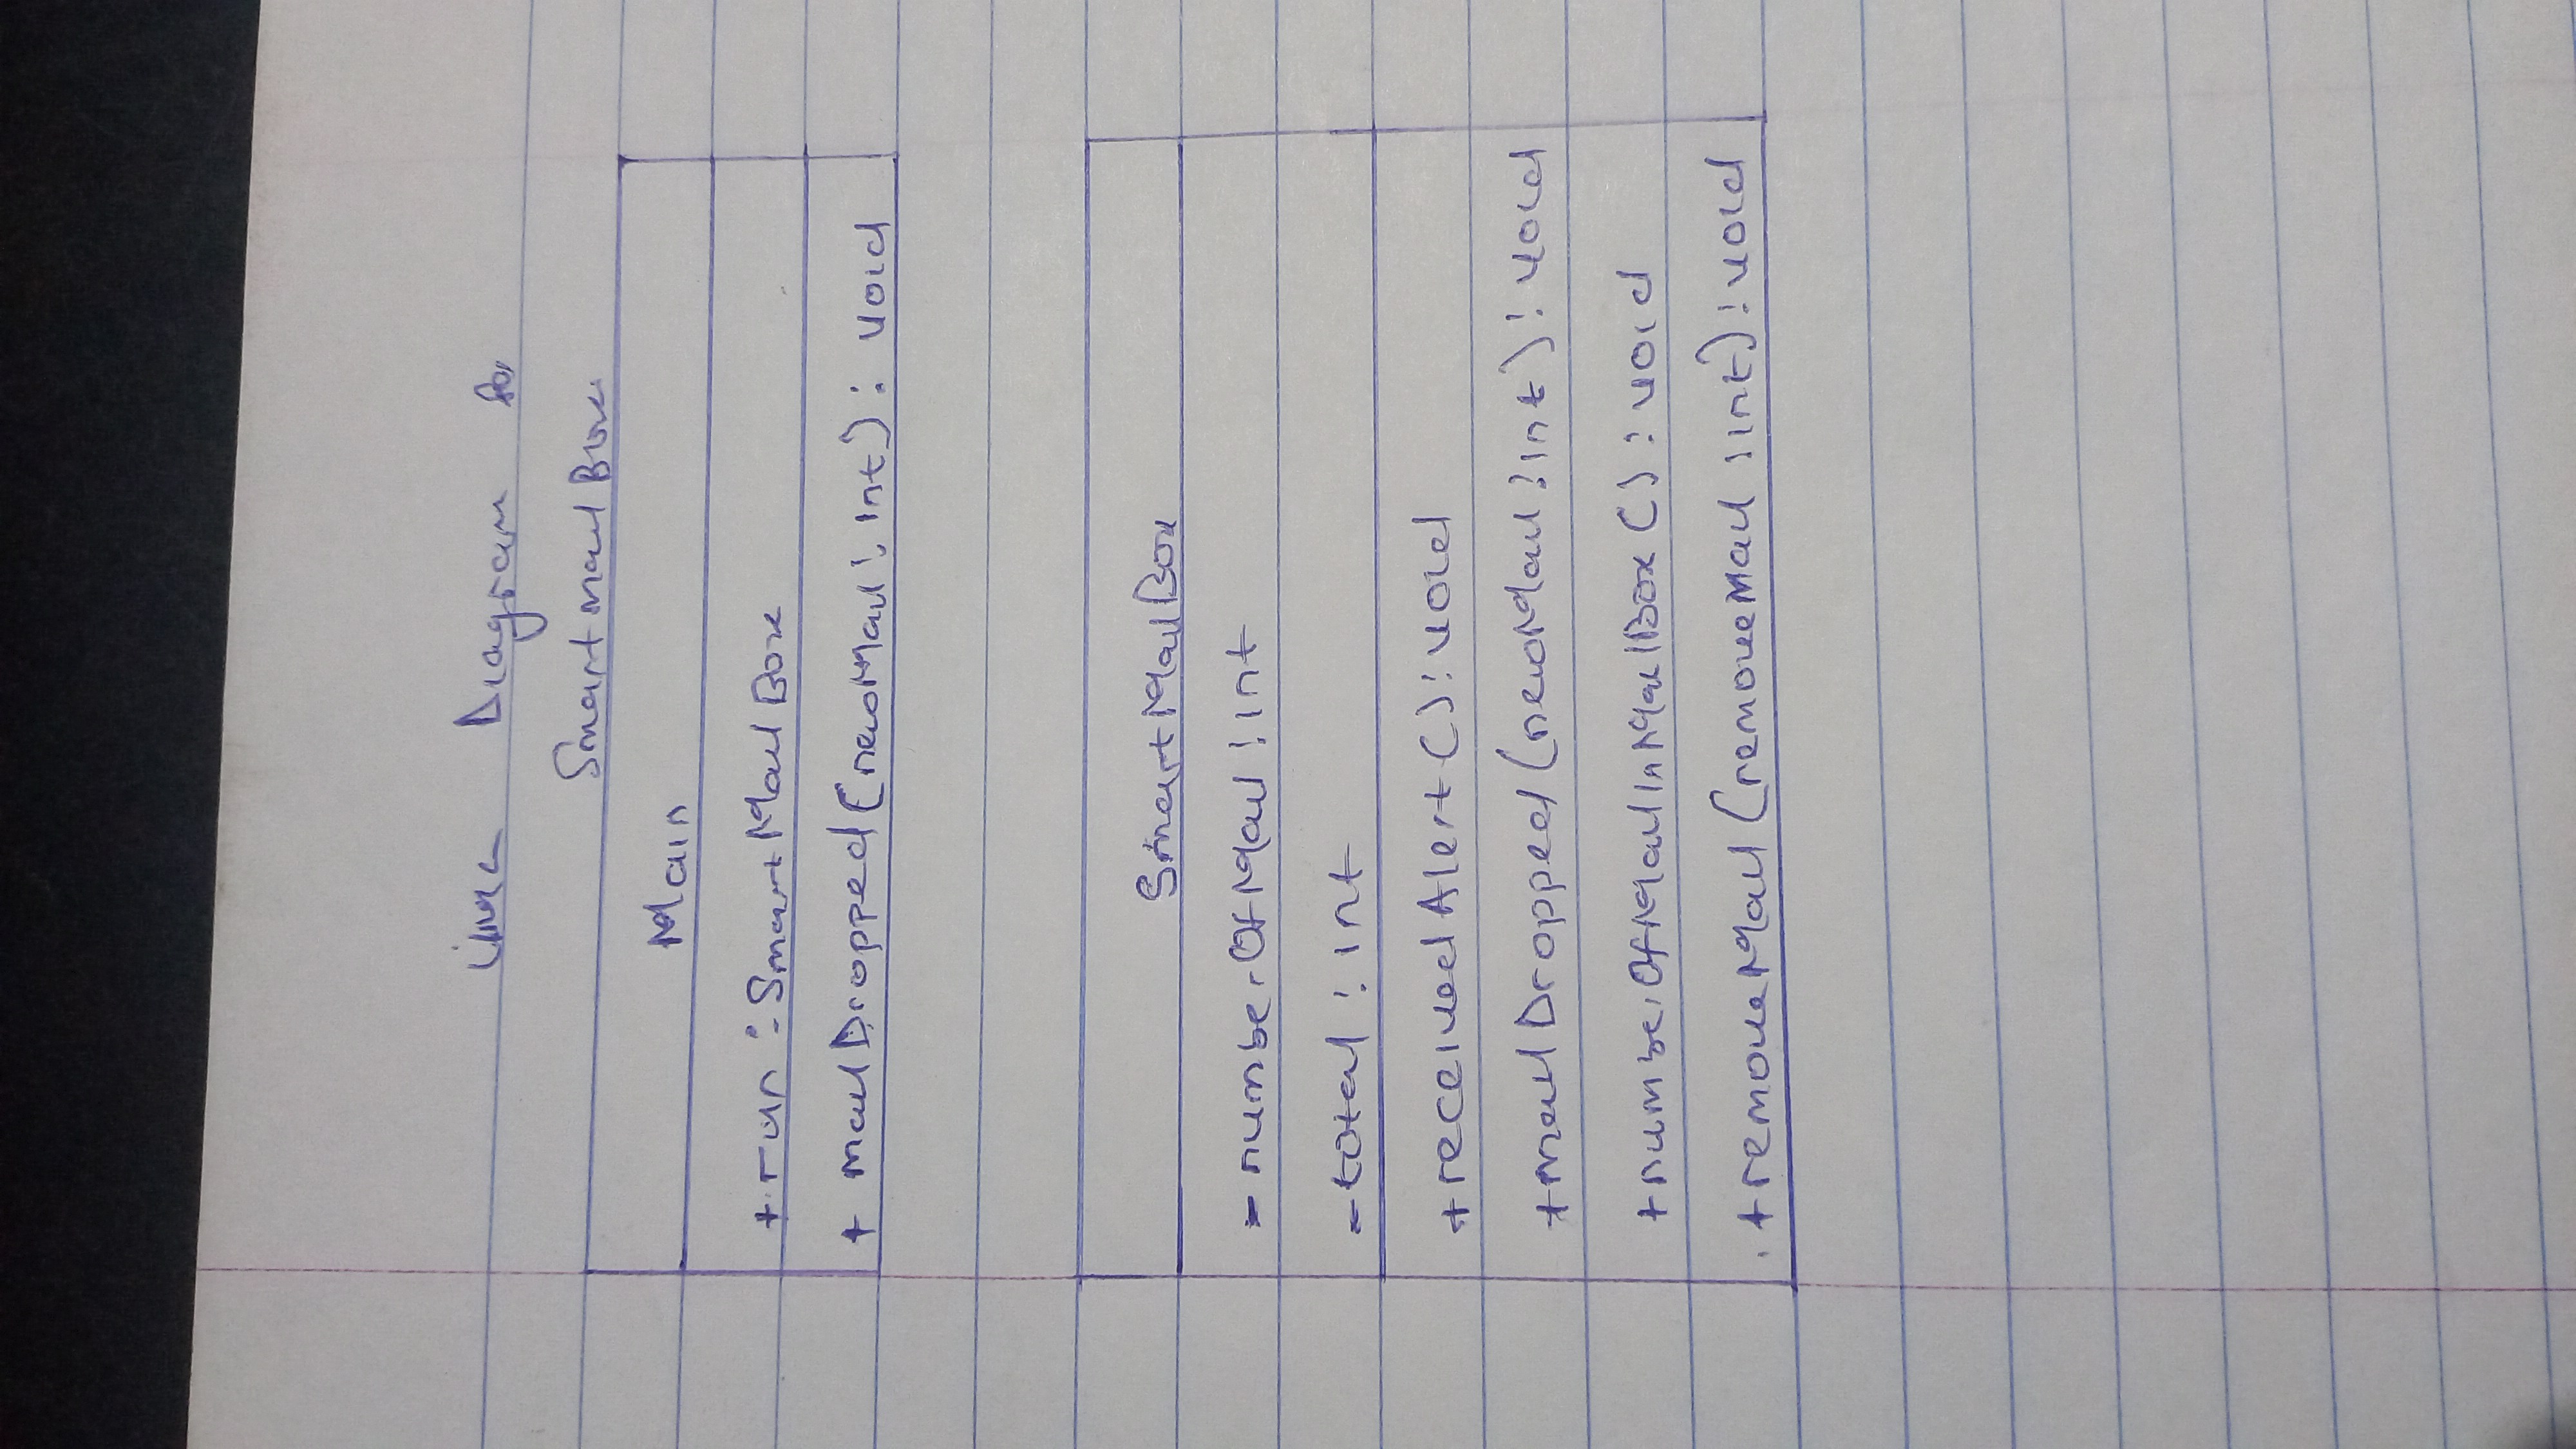 Diagram for
SmartMailBox
Main
+ run : SmartMailBox
+ mailDropped(newMail : int) : void
SmartMailBox
- numberOfMail : int
- total : int
+ receivedAlert() : void
+ mailDropped(newMail : int) : void
+ numberOfMailInMailBox() : void
+ removeMail(removeMail : int) : void